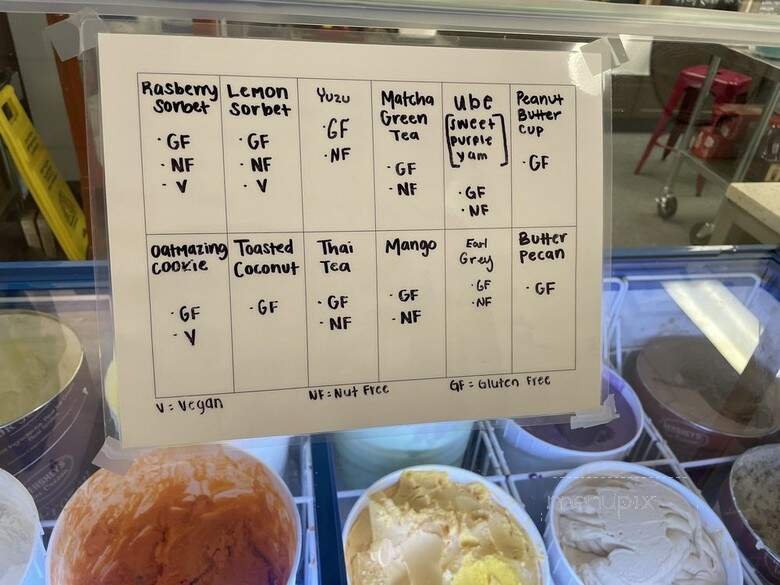 Rasberry
Sorbet
· GF
· NF
· V
Lemon
Sorbet
· GF
· NF
· V
Yuzu
· GF
· NF
Matcha
Green
Tea
· GF
· NF
Ube
[sweet
purple
yam]
· GF
· NF
Peanut
Butter
Cup
· GF
Oatmazing
Cookie
· GF
· V
Toasted
Coconut
· GF
Thai
Tea
· GF
· NF
Mango
· GF
· NF
Earl
Grey
· GF
· NF
Butter
Pecan
· GF
V = Vegan
NF = Nut Free
GF = Gluten Free
menupix